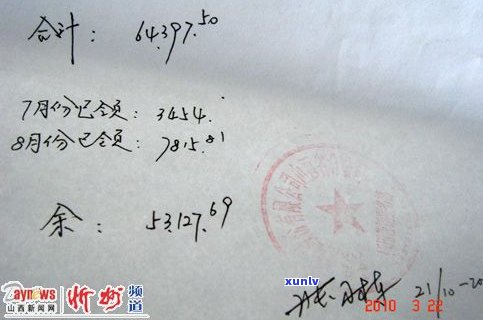 合计: 64,397.50
7月份已领: 3454.
8月份已领: 7815.81
余: 53,127.69
21/10-20
xunlv
2010 3 22
daynews
山西新闻网
忻州 频道